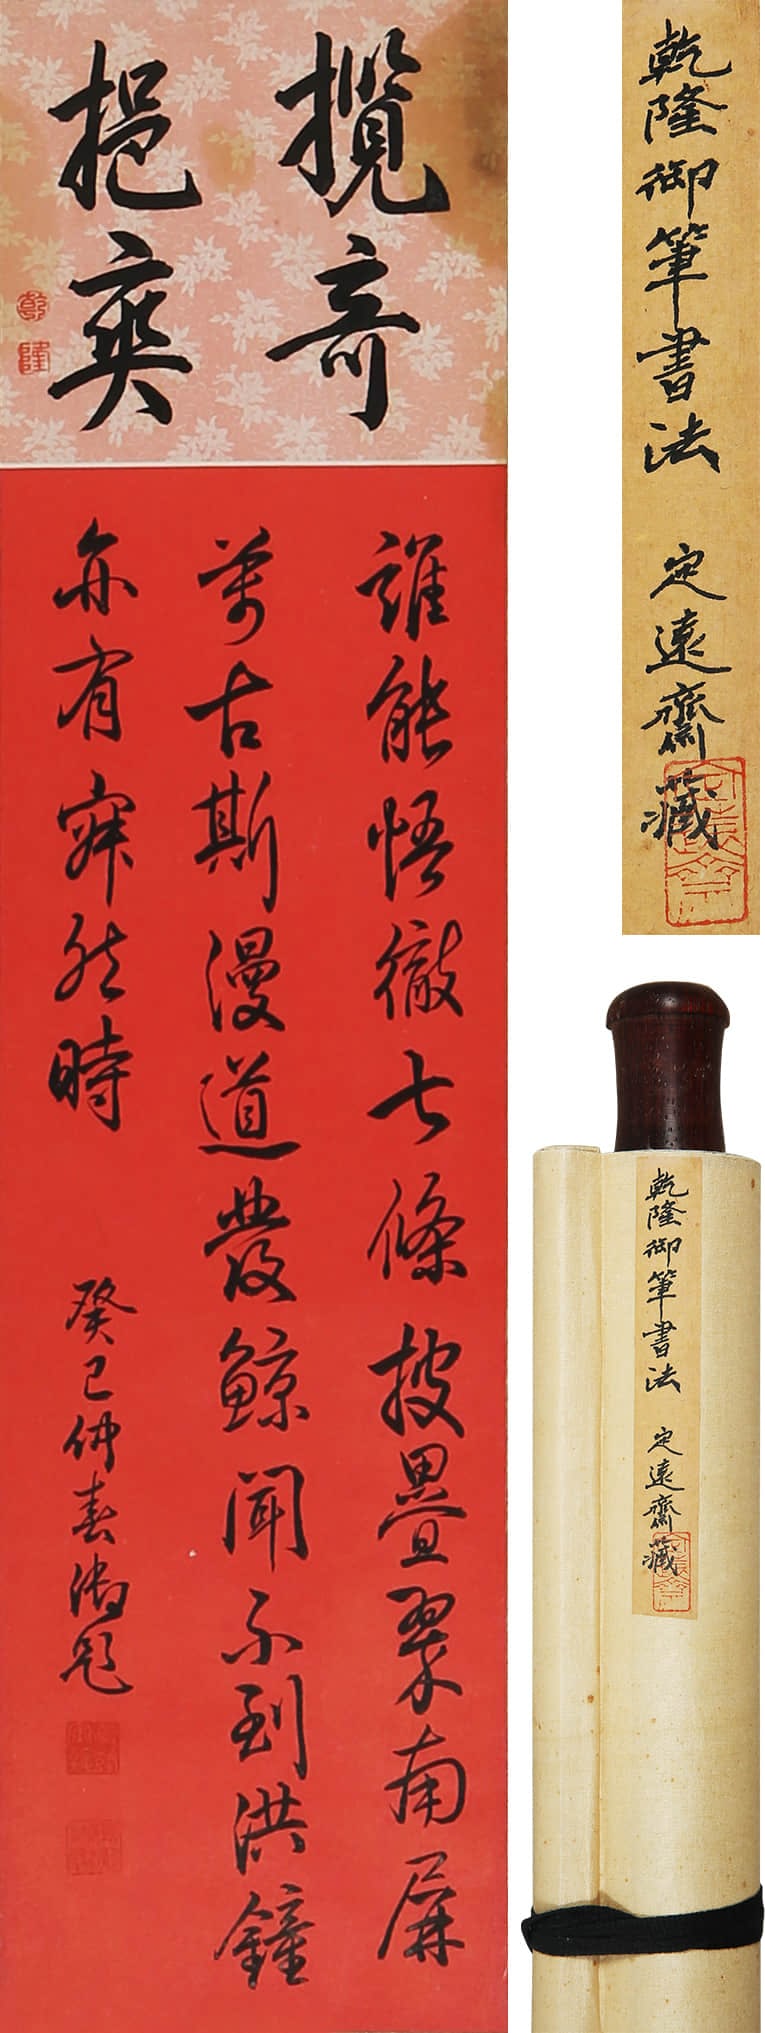 攬奇
挹爽
乾
隆
誰能悟徹七條披疊翠南屏
萬古斯漫道發鯨聞不到洪鐘
亦有寂然時 癸巳仲春御題
乾隆御筆書法 定遠齋藏
乾隆御筆書法 定遠齋藏